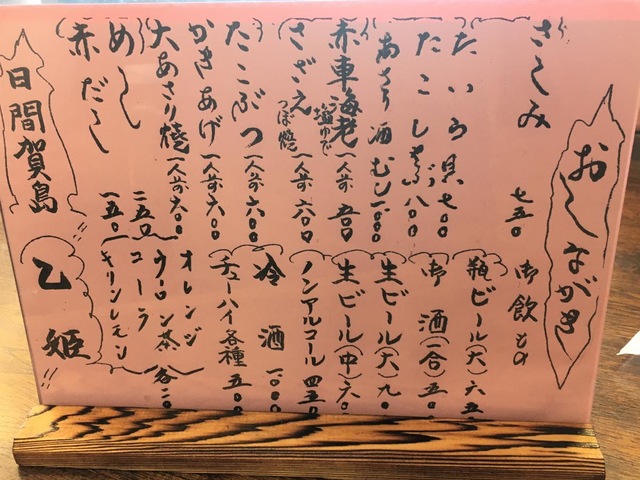 おしながき
さしみ 七五〇
たいら貝 七〇〇
たこしゃぶ 八〇〇
あさり酒むし 一〇〇〇
赤車海老 塩ゆで 一人前 五〇〇
さざえ つぼ焼 一人前 六〇〇
たこぶつ 一人前 六〇〇
かきあげ 一人前 六〇〇
大あさり焼 一人前 六〇〇
めし 二五〇
赤だし 一五〇
御飲もの
瓶ビール(大) 六五
御酒(一合) 五〇
生ビール(大) 九〇
生ビール(中) 六〇
ノンアルコール 四五〇
冷酒 一〇〇〇
チューハイ各種 五〇〇
オレンジ
ウーロン茶 各二〇
コーラ
キリンレモン
日間賀島
乙姫